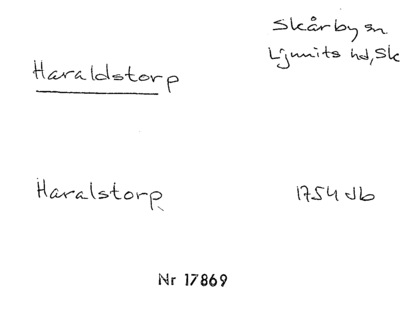 Skårby sn
Ljunits hd, Sk
Haraldstorp
Haralstorp
1754 Jb
Nr 17869